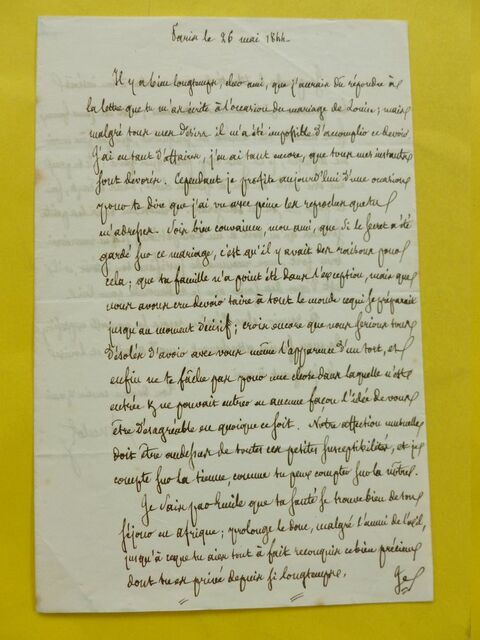 Paris le 26 mai 1844
Il y a bien longtemps, cher ami, que j'aurais dû répondre à
la lettre que tu m'as écrite à l'occasion du mariage de Louise; mais
malgré tous mes désirs il m'a été impossible d'accomplir ce devoir
J'ai eu tant d'affaires, j'en ai tant encore, que tous mes instants
sont dévorés. Cependant je profite aujourd'hui d'une occasion
pour te dire que j'ai vu avec peine les reproches que tu
m'adresses. Sois bien convaincu, mon ami, que si le secret a été
gardé sur ce mariage, c'est qu'il y avait des raisons pour
cela; que ta famille n'a point été dans l'exception, mais que
nous avons cru devoir taire à tout le monde ce qui se préparait
jusqu'au moment décisif; crois encore que nous serions tous
désolés d'avoir avec vous même l'apparence d'un tort, et
enfin ne te fâche pas pour une chose dans laquelle n'est
entrée & ne pouvait entrer en aucune façon l'idée de vous
être désagréable en quoique ce soit. Nôtre affection mutuelle
doit être au dessus de toutes ces petites susceptibilités, et je
compte sur la tienne, comme tu peux compter sur la nôtre.
Je sais par Emile que ta santé se trouve bien de ton
séjour en afrique; prolonge le donc, malgré l'ennui de l'exil,
jusqu'à ce que tu aies tout à fait reconquis ce bien précieux
dont tu es privé depuis si longtemps.
Je